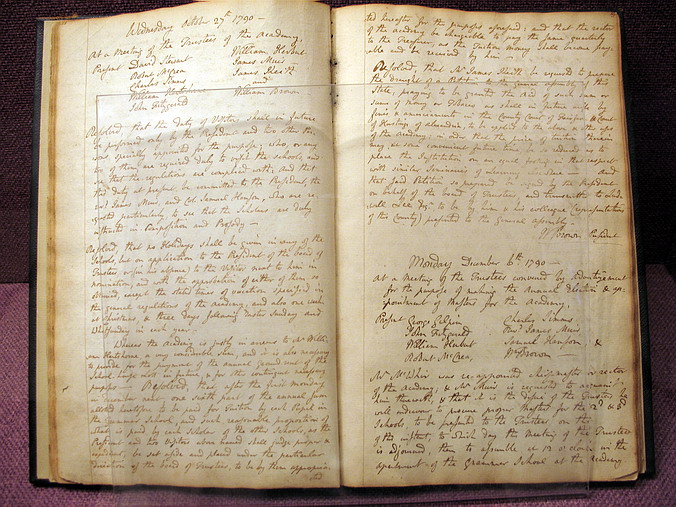 Wednesday October 27th 1790 —
At a Meeting of the Trustees of the Academy,
Present David Stewart William Herbert
Robert McCrea James Muir
Charles Simms James Keith
William and
John Fitzgerald William Brown
Resolved, that the duty of Visitors, shall in future
be performed only by the President and two other Per-
sons specially appointed for the purpose; who, or any
two of them, are required duly to visit the schools, and
see that the regulations are complied with; And that
this duty at present be committed to the President, the
Revd James Muir, and Col. Samuel Hanson, who are re-
quested particularly to see that the Scholars are duly
instructed in Composition and Prosody —
Resolved, that no Holidays shall be given in any of the
Schools, but on application to the President of the board of
Trustees, or in his absence, to the Visitor next to him in
nomination, and with the approbation of either of them so
obtained, except the stated times of vacation specified in
the general regulations of the academy, and also one week
at Christmas, & three days following Easter Sunday and
Whitsunday in each year.
Whereas the Academy is justly in arrears to Mr. Willi-
am Hartshorne, a very considerable sum, and it is also necessary
to provide for the payment of the annual ground rent of the
School house Lott in future, & for the contingent necessary
supplies — Resolved, that after the first monday
in December next, one sixth part of the annual sum
allotted heretofore to be paid for Tuition by each Pupil in
the Grammar School, and such reasonable proportion of
that paid by each Scholar of the other Schools, as the
President and two Visitors above named shall judge proper &
expedient, be set aside and placed under the particular
direction of the board of Trustees, to be by them appropria-
ted
ted hereafter for the purposes aforesaid; and that the rector
of the academy be chargeable to pay the same quarterly
to the Treasurer, as the Tuition money shall become pay-
able and be received by him —
Resolved, that Mr. James Keith be requested to prepare
the draught of a Petition to the general assembly of this
State, praying to be granted the aid of such annual
sums of money or Tobacco as shall in future arise by
fines & amercements in the County Court of Fairfax & Court
of Hustings of Alexandria, to be applied to the above, & other uses
of the Academy; in order that the price of tuition therein
may at some convenient future time be so reduced as to
place the Institution on an equal footing in that respect
with similar Seminaries of learning in this State — and
that said Petition so prepared be signed by the President
on behalf of the board of Trustees, and transmitted to Lud-
well Lee Esqr. to be by him & his colleague (representatives
of this County) presented to the general Assembly —
Wm Brown President
Monday December 6th 1790 —
At a meeting of the Trustees convened by Advertisement
for the purpose of making the Annual Election & ap-
pointment of Masters for the Academy,
Present George Gilpin Charles Simms
John Fitzgerald Revd. James Muir
William Herbert Samuel Hanson &
Robert McCrea, Wm Brown —
Mr. McWhir was re-appointed chief master or rector
of the Academy; & Mr. Muir is requested to acquaint
him therewith, & that it is the desire of the Trustees he
will endeavour to procure proper Masters for the 2d & 3d
Schools, to be presented to the Trustees on the
of the instant, to which day the meeting of the Trustees
is adjourned, then to assemble at 12 o'clock in the
apartment of the Grammar School at the Academy